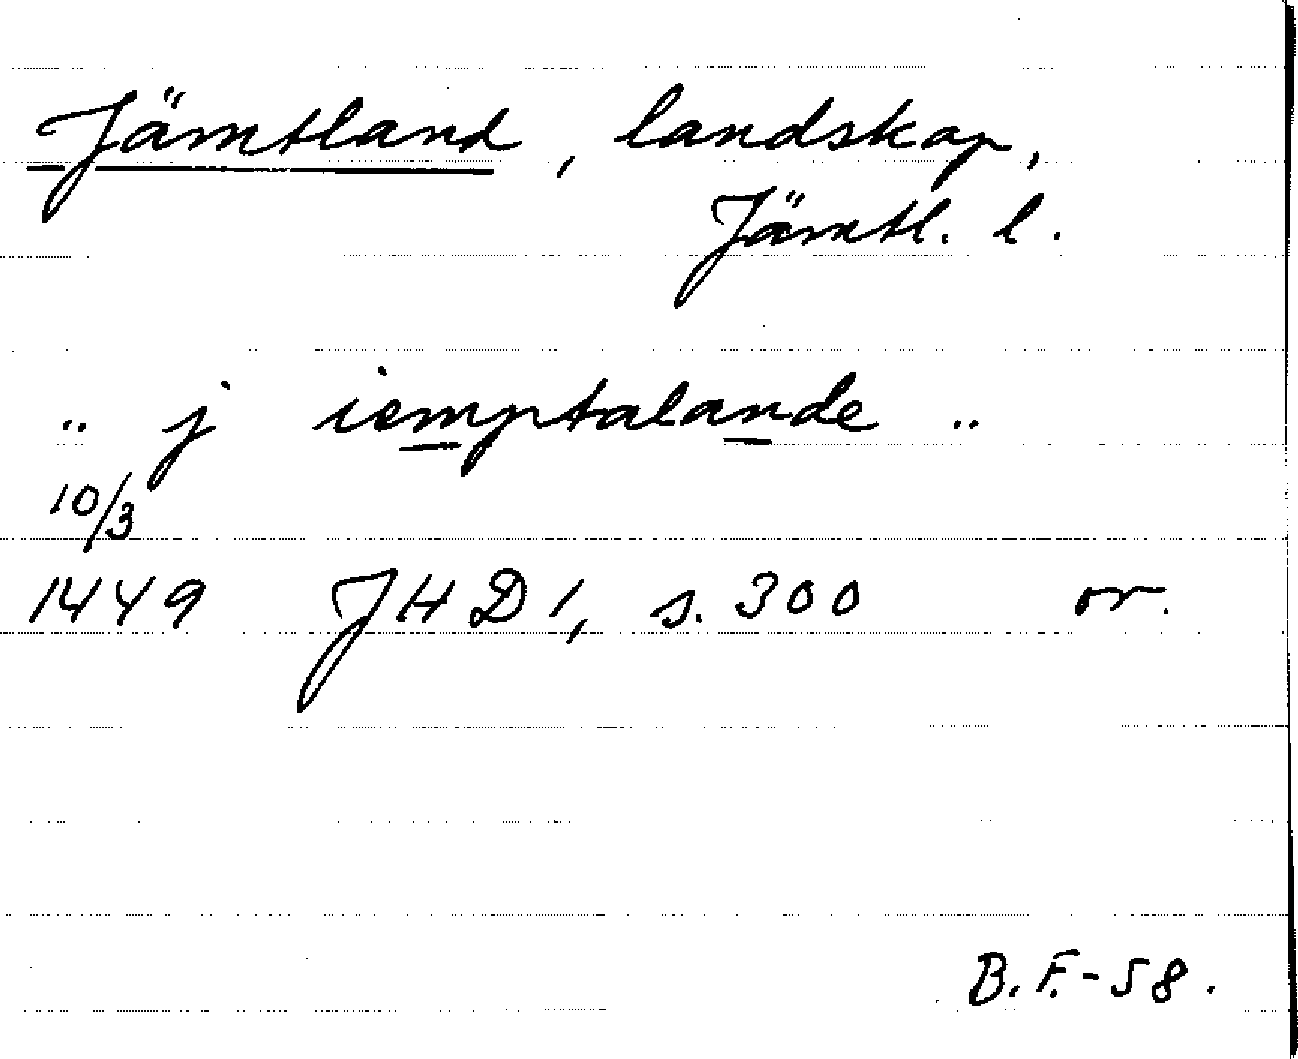 Jämtland, landskap,
Jämtl. l.
.. j iemptalande ..
10/3
1449 JHD 1, s. 300 or.
B.F.-58.